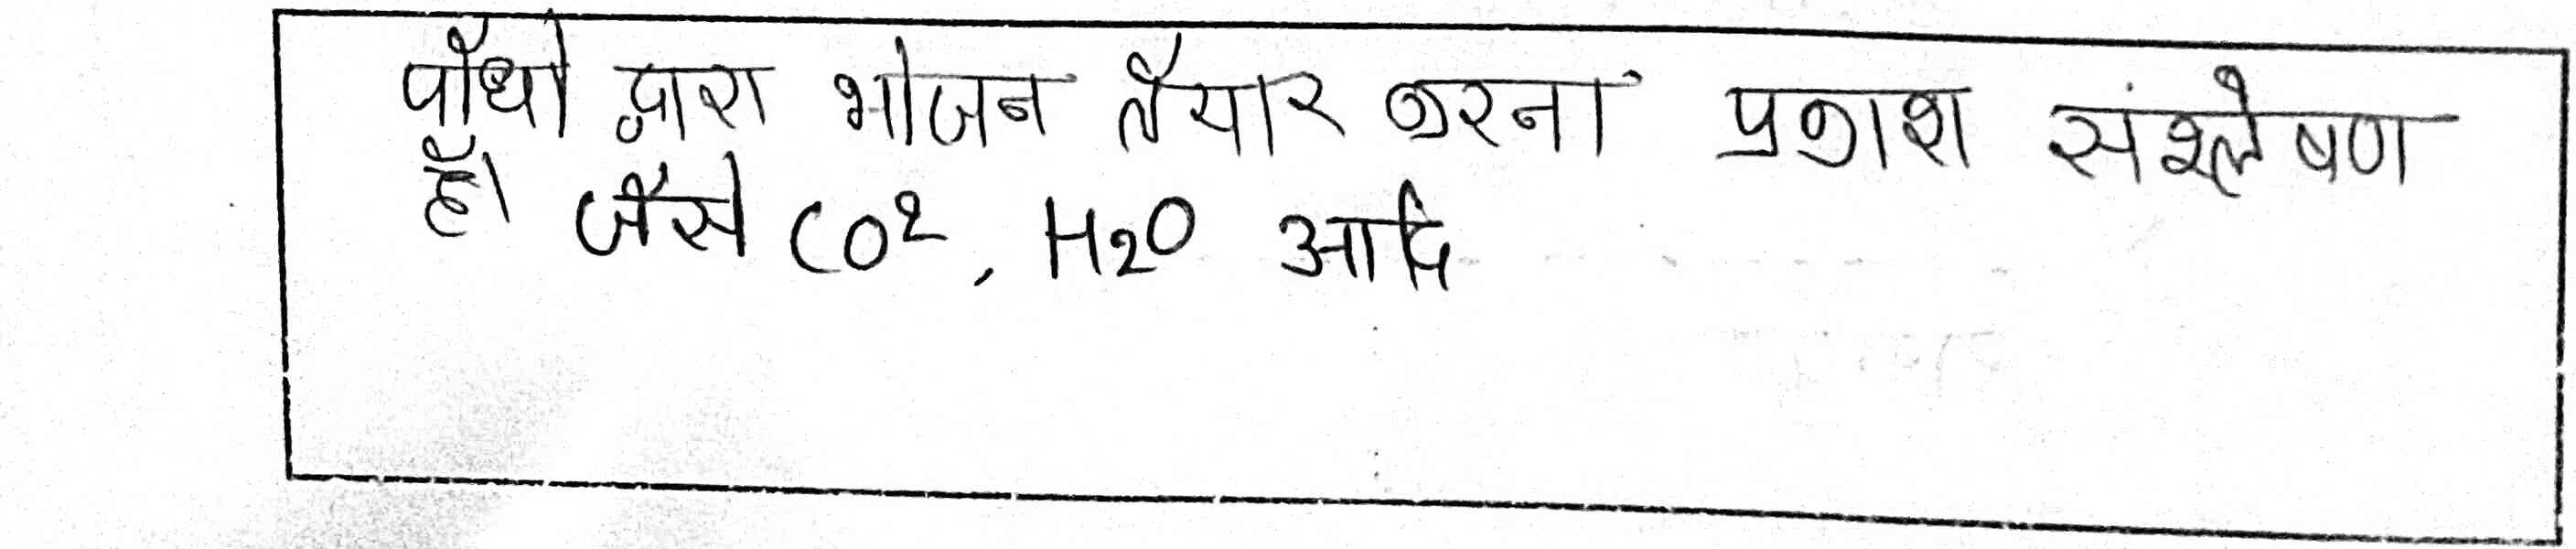 पौधों द्वारा भोजन तैयार करना प्रकाश संश्लेषण
है। जैसे CO², H₂O आदि